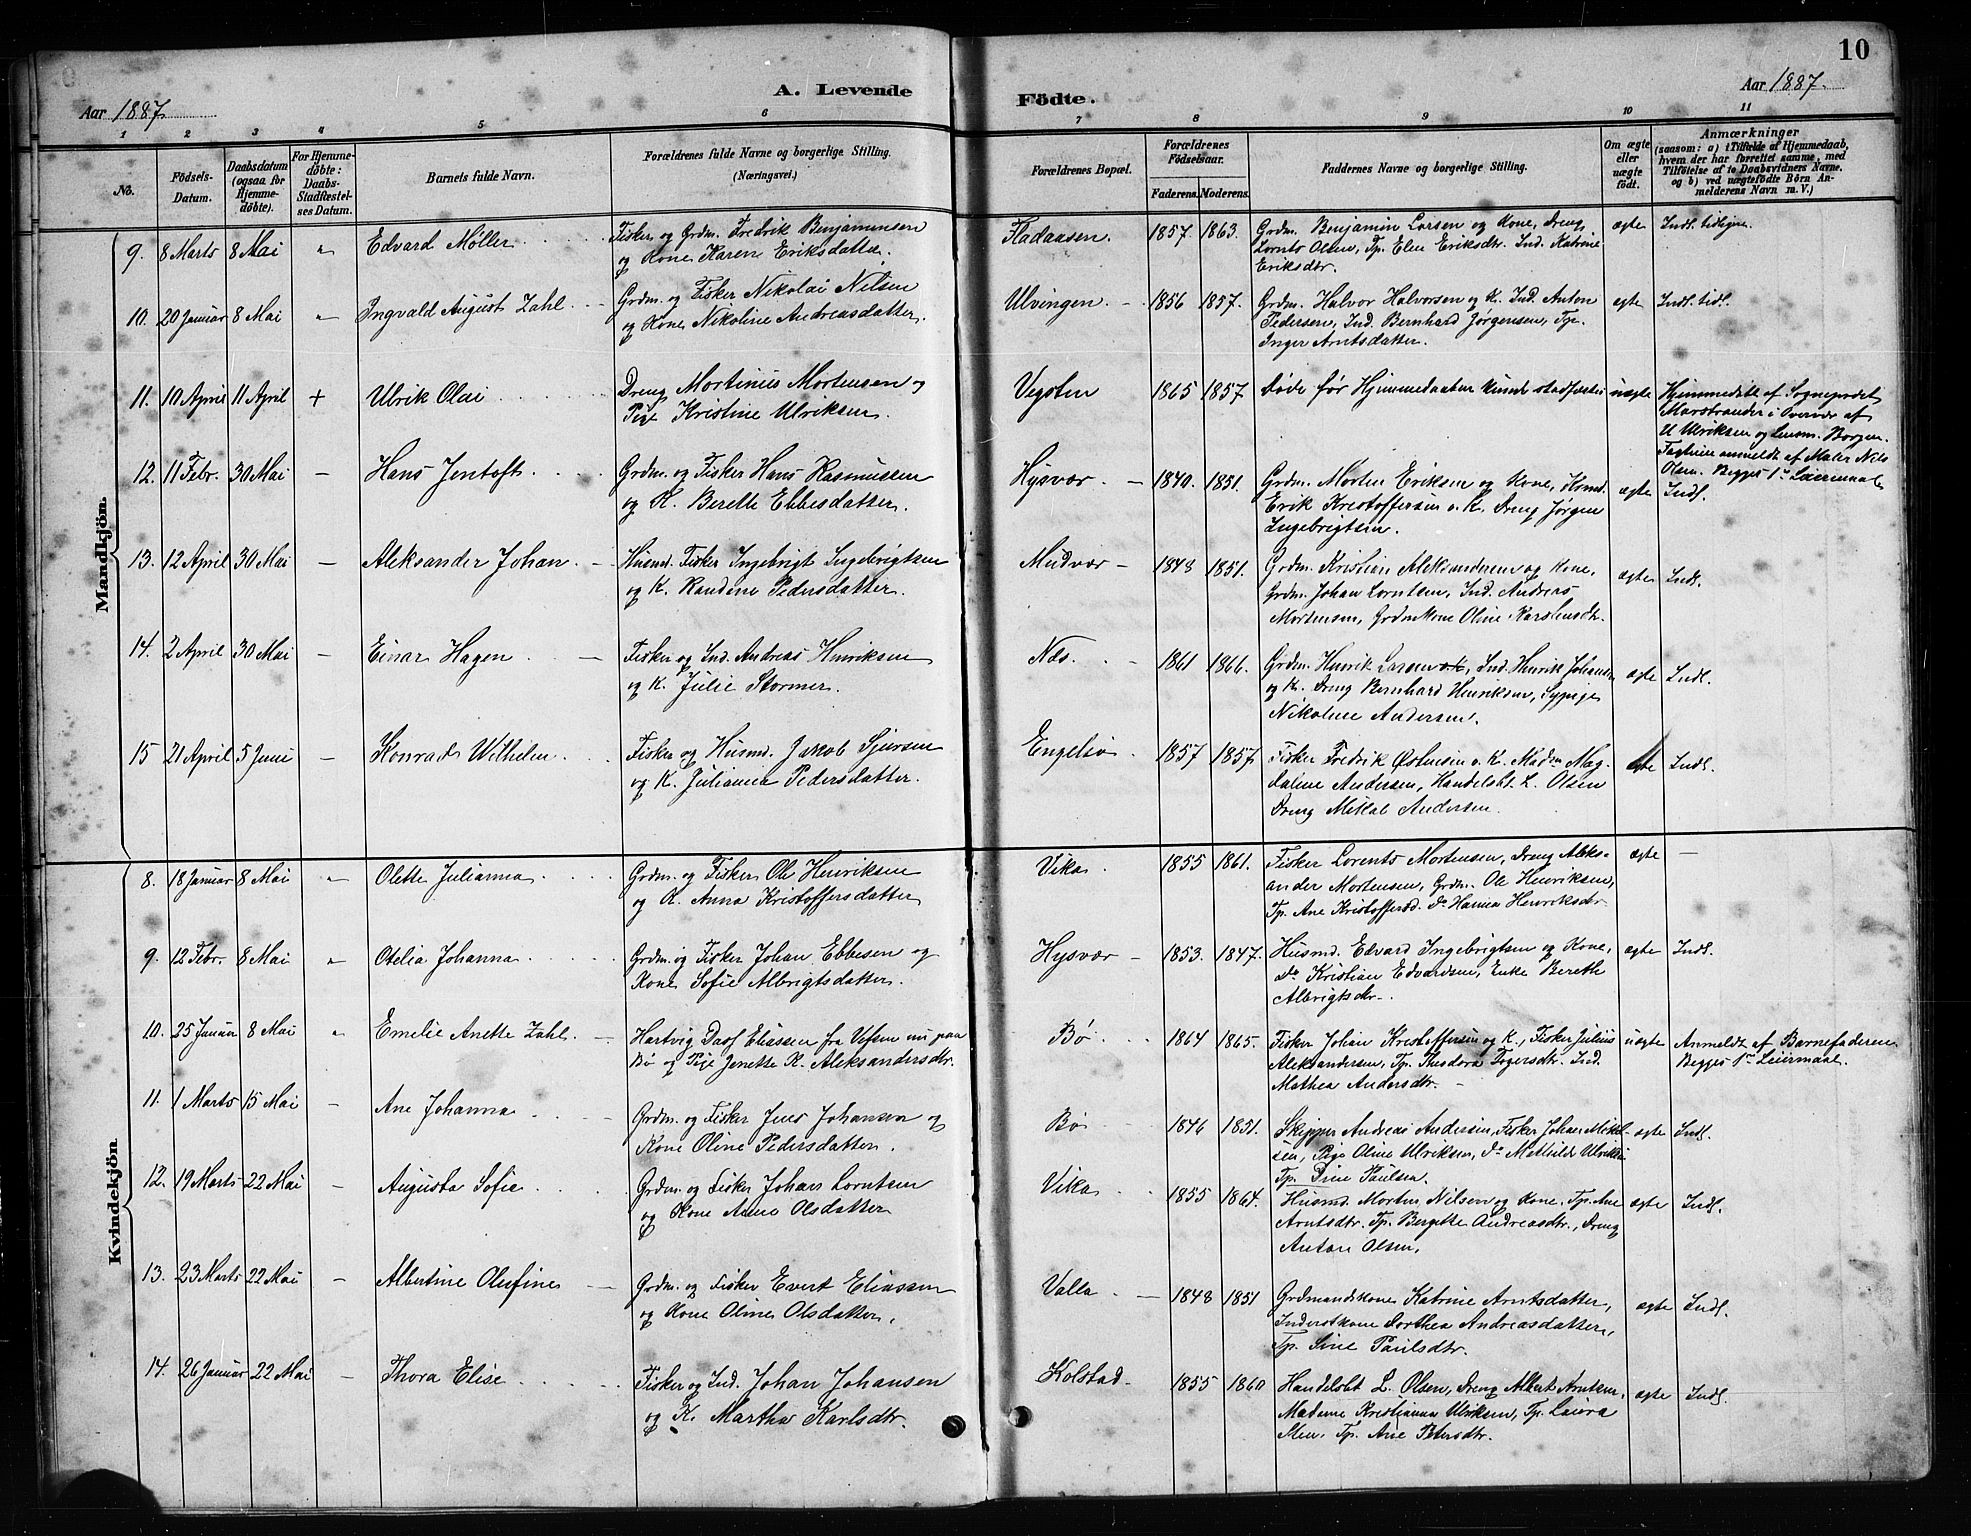 10
A. Levende Födte.
Aar 1887.
Aar 1887.
1 2 3 4 5 6 7 8 9 10 11
No.
Födsels-Datum.
Daabsdatum (ogsaa for Hjemme-döbte).
For Hjemme-döbte: Daabs-Stadfæstel-ses Datum.
Barnets fulde Navn.
Forældrenes fulde Navne og borgerlige Stilling.
(Næringsvei.)
Forældrenes Bopæl.
Forældrenes Födselsaar.
Faderens. Moderens.
Faddernes Navne og borgerlige Stilling.
Om ægte eller uægte födt.
Anmærkninger
(saasom: a) i Tilfælde af Hjemmedaab,
hvem der har forrettet samme, med
Tilföielse af to Daabsvidners Navne,
og b) ved uægtefödte Börn An-
melderens Navn m. V.)
Mandkjön.
9. 8 Marts 8 Mai " Edvard Möller
Fisker og Grdm. Fredrik Benjaminsen
og Kone Karen Eriksdatter.
Fladaasen. 1857 1863.
Grdm. Benjamin Larsen og Kone, Dreng
Lornts Olsen, Tp. Elen Eriksdtr. Ind. Katrine
Eriksdtr.
ægte Indl. tidligere.
10. 20 Januar 8 Mai " Ingvald August Zahl
Grdm. og Fisker Nikolai Nilsen
og Kone Nikoline Andreasdatter.
Ulvingen 1856 1857.
Grdm. Halvor Halvorsen og K. Ind. Anton
Pedersen, Ind. Bernhard Jørgensen, Tp.
Inger Arntsdatter.
ægte Indl. tidl.
11. 10 April 11 April + Ulrik Olai
Dreng Mortinus Mortensen og
Pige Kristine Ulriksen.
Vegsten 1865 1857
Døde før Hjemmedaaben kunde stadfæstes
uægte
Hjemmedøbt af Sognepræst
Marstrander i Overvær af
U Ulriksen og Lensm. Borgen.
anmeldt af Maler Nils
Olsen. Begges 1ste Leiermaal
12. 11 Febr. 30 Mai – Hans Jentoft
Grdm. og Fisker Hans Rasmussen
og K. Berette Ebbesdatter.
Hysvær – 1840. 1851.
Grdm. Morten Eriksen og Kone,
Erik Kristoffersen o. K. Dreng Jørgen
Ingebrigtsen.
ægte Indl.
13. 12 April 30 Mai – Aleksander Johan
Husmd. Fisker Ingebrigt Ingebrigtsen
og K. Randine Pedersdatter.
Mudvær – 1848 1851.
Grdm. Kristian Aleksandersen og Kone,
Grdm. Johan Lorntsen, Ind. Andreas
Mortensen, Grdmkone Oline Karstensdtr.
ægte Indl.
14. 2 April 30 Mai – Einar Hagen
Fisker og Ind. Andreas Henriksen
og K. Julie Stormer.
Nes. – 1861 1866.
Grdm. Henrik Larsen o. K, Ind. Henrik Johansen
og K. Dreng Bernhard Henriksen, Sypige
Nikoline Andersen.
ægte Indl.
15 21 April 5 Juni – Konrad Wilhelm
Fisker og Husmd. Jakob Sjursen
og K. Julianna Pedersdatter.
Engelsø 1857 1857
Fisker Fredrik Østensen o. K. Madm Mag-
dalene Andersen, Handelsbt. L. Olsen
Dreng Mikal Andersen.
ægte Indl.
Kvindekjön
8. 18 Januar 8 Mai " Olette Julianna
Grdm. og Fisker Ole Henriksen
og K. Anna Kristoffersdatter
Vika. 1855 1861.
Fisker Lorents Mortensen, Dreng Aleks-
ander Mortensen, Grdm. Ole Henriksen,
Tp. Ane Kristoffersd. Do Hanna Henriksdtr.
ægte –
9. 12 Febr. 8 Mai " Otelia Johanna
Grdm. og Fisker Johan Ebbesen og
Kone Sofie Albrigtsdatter.
Hysvær – 1853. 1847.
Husmd. Edvard Ingebrigtsen og Kone,
Do Kristian Edvardsen, Enke Bereth
Albrigtsdtr.
ægte Indl.
10. 25 Januar 8 Mai " Emelie Anette Zahl
Hartvig Eliassen fra Vefsen nu paa
Bø og Pige Jenette K. Aleksandersdtr.
Bø 1864 1865.
Fisker Johan Kristoffersen og K., Fisker Julius
Aleksandersen, Tp. Theodora Ind.
Mathea Andersdtr. –
uægte
Anmeldt af Barnefaderen
Begges 1ste Leiermaal.
11. 1 Marts 15 Mai – Ane Johanna
Grdm. og Fisker Jens Johansen og
Kone Oline Pedersdatter.
Bø 1846 1851.
Skipper Andreas Andersen, Fisker Johan Mikkel-
sen, Pige Oline Ulriksen, Do Mathilde Ulriksen
Tp. Dine Paulsen.
ægte Indl.
12. 19 Marts 22 Mai – Augusta Sofie
Grdm. og Fisker Johan Lorntsen
og Kone Anne Olsdatter
Vika 1855 1864.
Husmd. Morten Nilsen og Kone. Tp. Ane
Arntsdtr. Tp. Bergitte Andreasdtr., Dreng
Anton Olsen,
ægte Indl.
13. 23 Marts 22 Mai – Albertine Olufine
Grdm. og Fisker Evert Eliassen
og Kone Oline Olsdatter.
Valla 1848 1851
Grdmandskone Katrine Arntsdatter,
Inderstkone Dorthea Andreasdatter,
Tp. Sine Paulsdtr.
ægte Indl.
14. 26 Januar 22 Mai – Thora Elise
Fisker og Ind. Johan Johansen
og K. Martha Karlsdtr.
Kolstad 1855 1860
Handelsbt L. Olsen, Dreng Albert Arntsen,
Madame Kristianna Ulriksen, Tp. Laura
Tp. Ane Petersdtr.
ægte Indl.